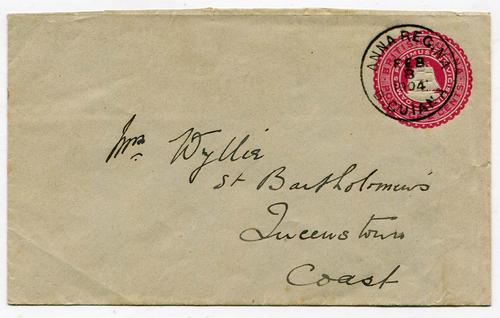 ANNA REGINA
FEB
8
04
B. GUIANA
BRITISH
POSTAGE
CENTS
Mrs Wyllie
St Bartholomew's
Queenstown
Coast